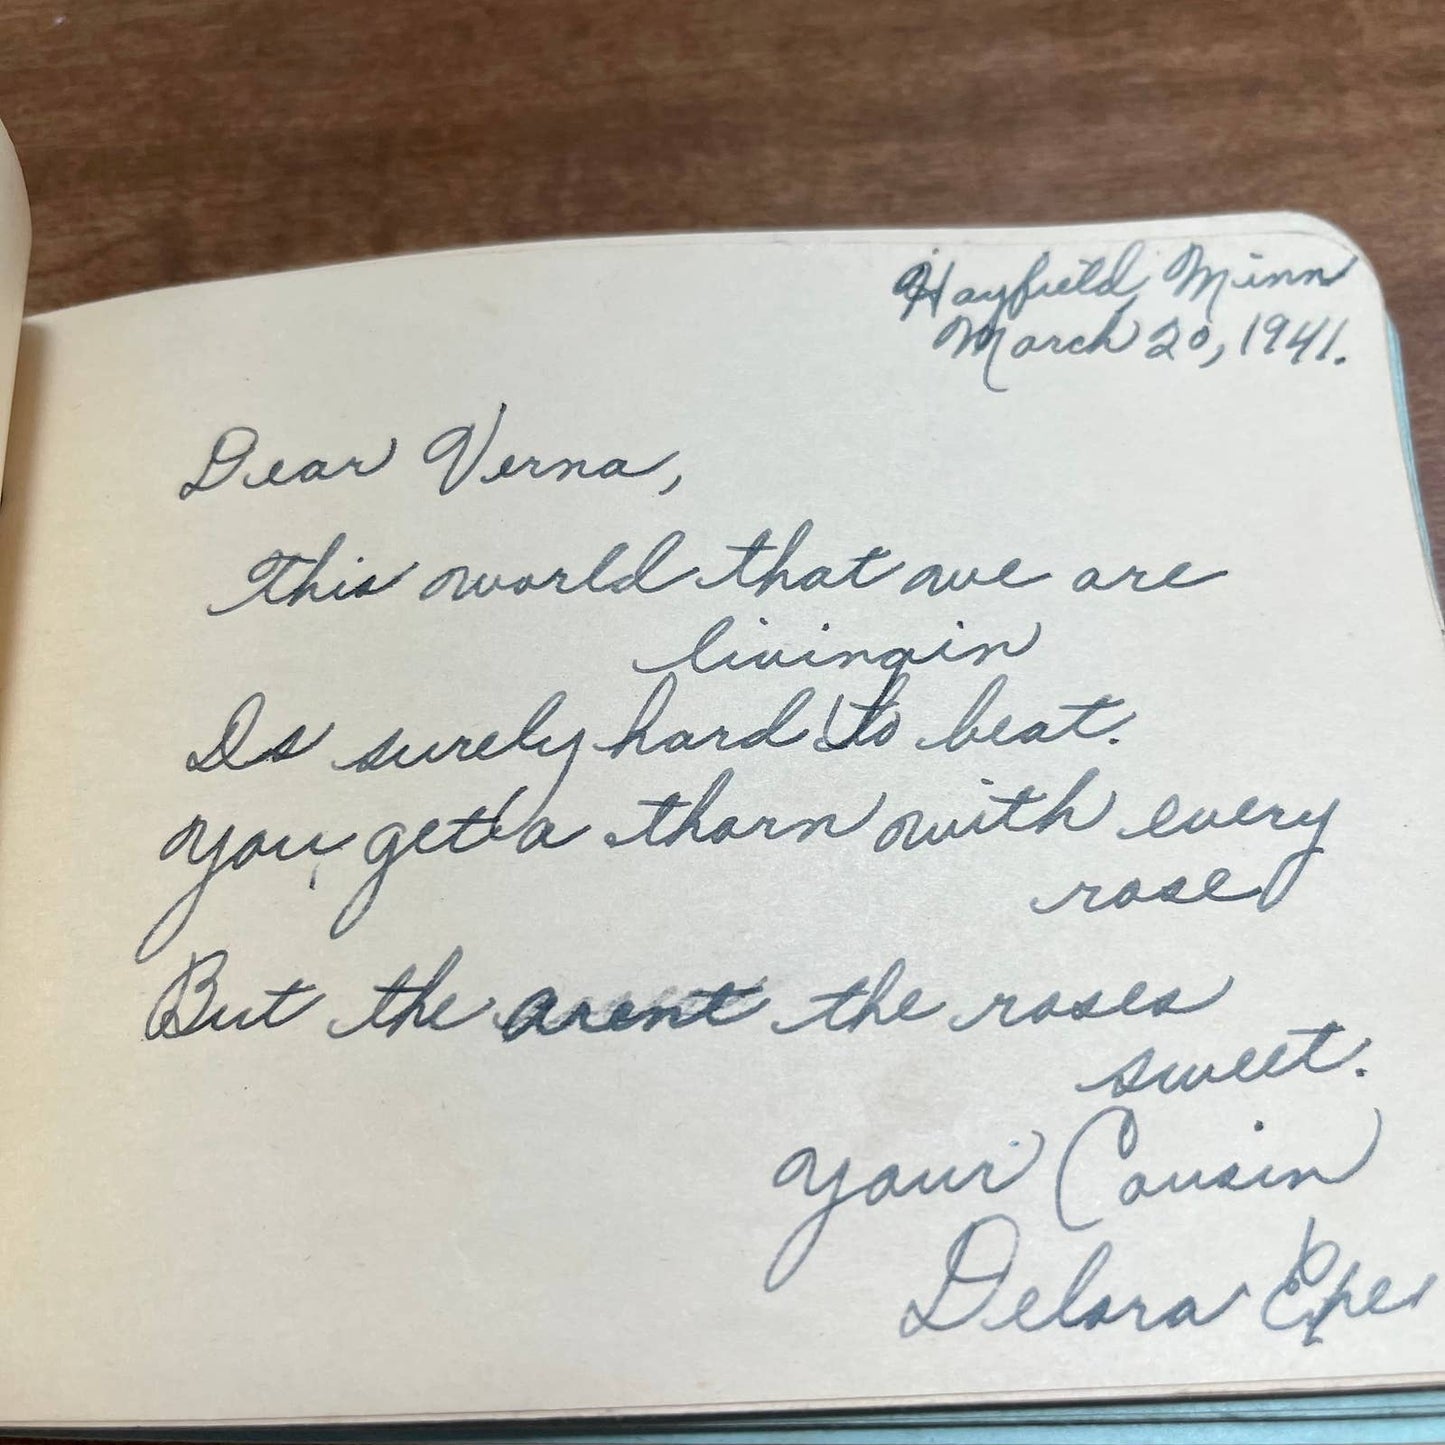 Hayfield, Minn
March 20, 1941.
Dear Verna,
This world that we are
livingin
Is surely hard to beat.
You get a thorn with every
rose
But the arent the roses
sweet.
Your Cousin
Delora